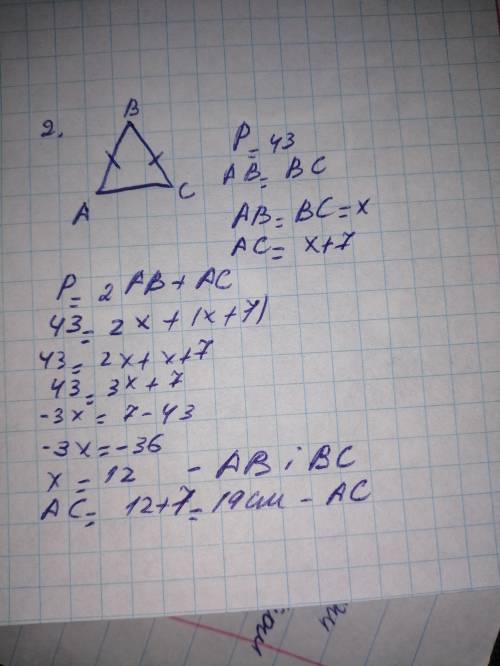 2.
B
A
C
P = 43
AB = BC
AB = BC = x
AC = x+7
P = 2 AB + AC
43 = 2x + (x+7)
43 = 2x + x + 7
43 = 3x + 7
-3x = 7-43
-3x = -36
x = 12 - AB i BC
AC = 12+7 = 19 см - AC